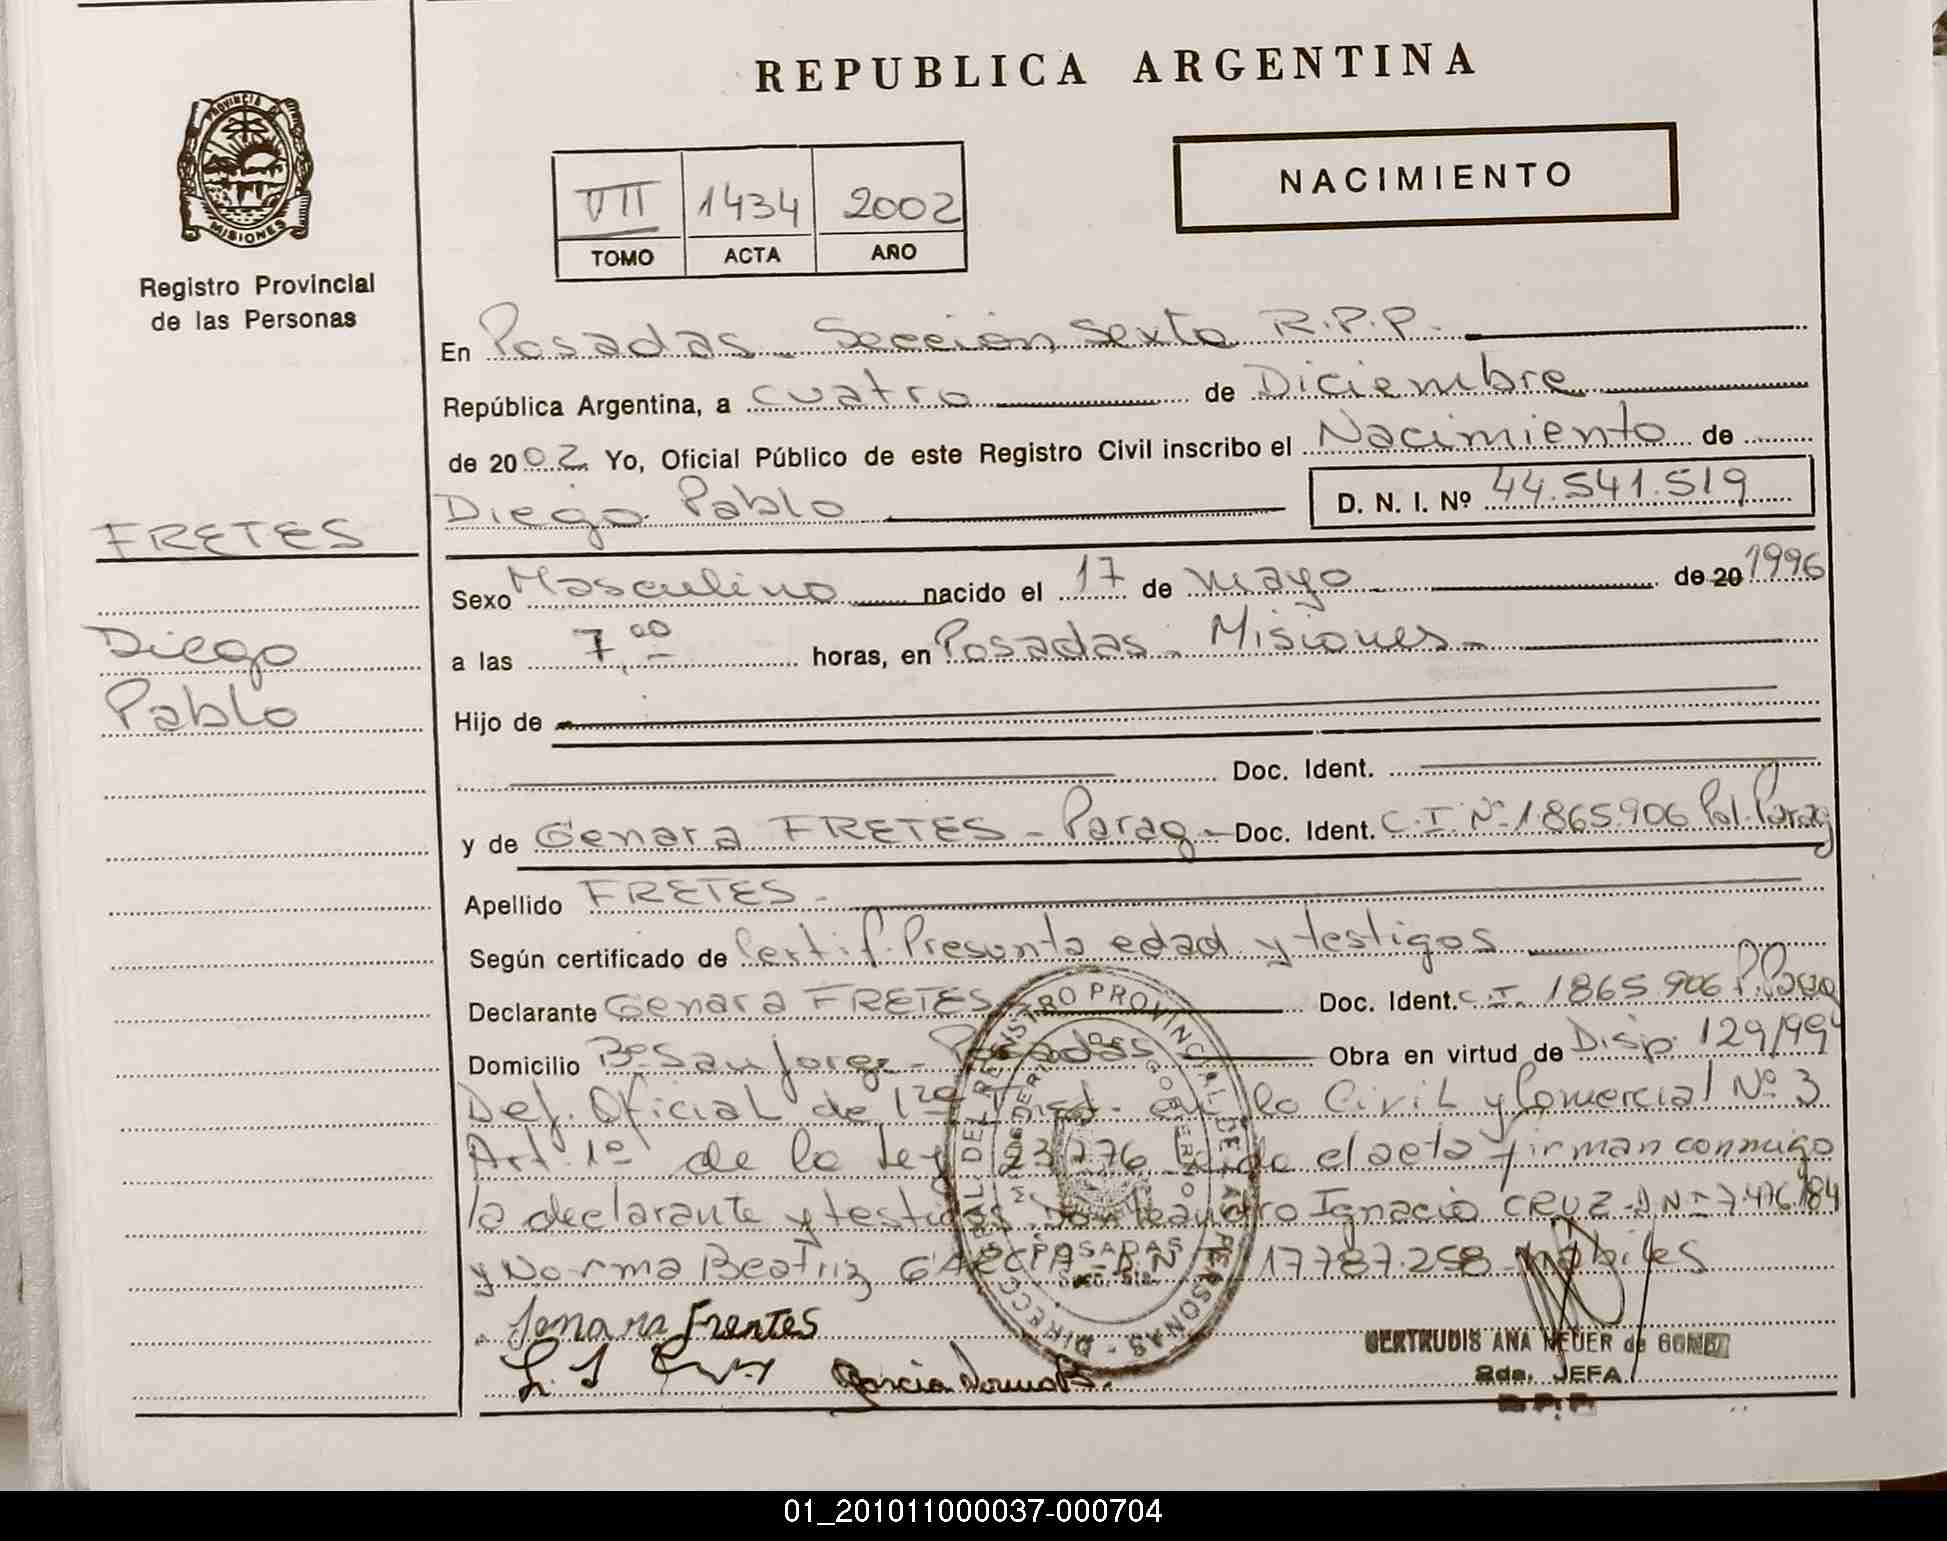 REPUBLICA ARGENTINA
PROVINCIA DE
MISIONES
Registro Provincial
de las Personas
VII 1434 2002
TOMO ACTA AÑO
NACIMIENTO
En Posadas - Sección Sexta R.P.P.
República Argentina, a cuatro de Diciembre
de 2002. Yo, Oficial Público de este Registro Civil inscribo el Nacimiento de
Diego Pablo D. N. I. Nº 44.541.519
FRETES
Diego
Pablo
Sexo Masculino nacido el 17 de mayo de 20 1996
a las 7,00 horas, en Posadas - Misiones -
Hijo de
Doc. Ident.
y de Genara FRETES - Parag - Doc. Ident. C.I. Nº 1.865.906 Pol. Parag
Apellido FRETES -
Según certificado de Certif. Presunta edad y testigos
Declarante Genara FRETES Doc. Ident. C.I. 1865.906 P.Parag
Domicilio Bº San Jorge - Posadas Obra en virtud de Disp. 129/99
Def. Oficial de 1ra Inst. en lo Civil y Comercial Nº 3
Art. 1º de la Ley 23.776 Leída el acta firman conmigo
la declarante y testigos Don Leandro Ignacio CRUZ - DNº 7.476.184
y Norma Beatriz GARCIA - DN 17.787.258 - hábiles
Genara Frentes
García Norma B.
DIRECCION GENERAL DEL REGISTRO PROVINCIAL DE LAS PERSONAS
MINISTERIO DE GOBIERNO
POSADAS
Secc. 6ta.
GERTRUDIS ANA NEUER de GOMEZ
2da. JEFA
R.P.P.
01_201011000037-000704